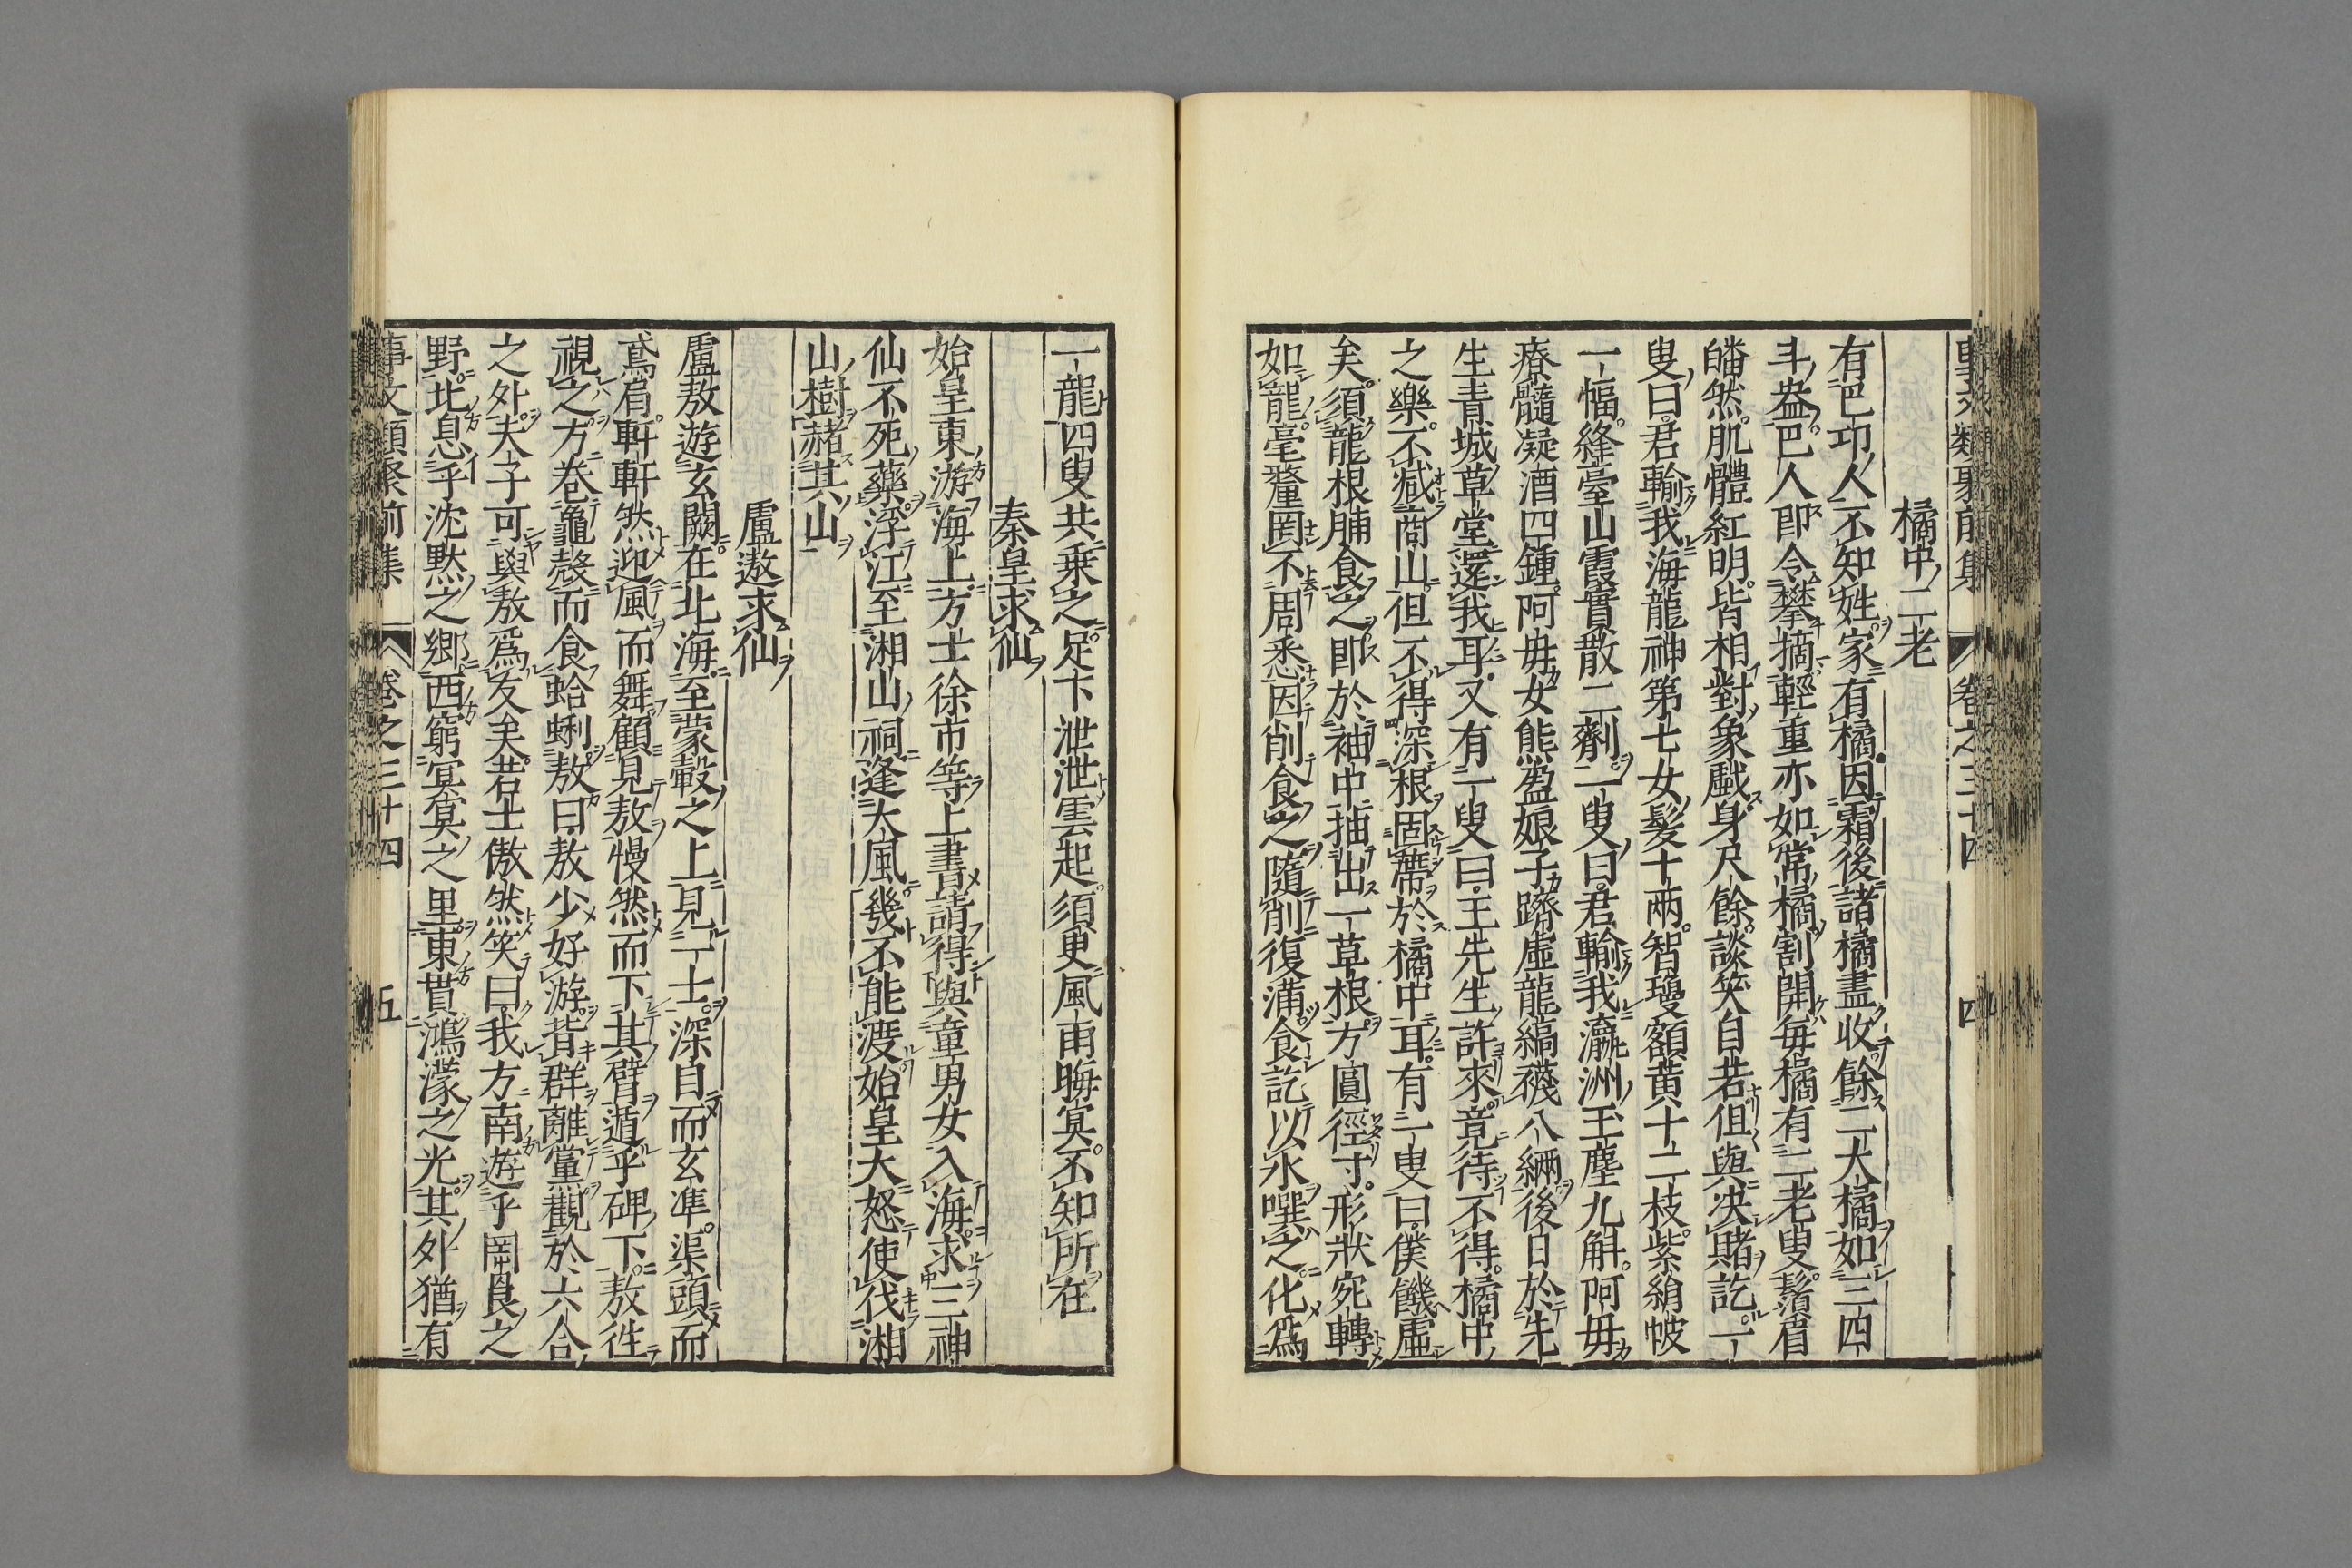 事文類聚前集 卷之三十四 四
橘中二老
有巴邛人不知姓家有橘因霜後諸橘盡收餘二大橘如三四
斗盎巴人即令攀摘輕重亦如常橘割開每橘有二老叟鬚眉
皤然肌體紅明皆相對象戲身尺餘談笑自若但與決賭訖一
叟曰君輸我海龍神第七女髮十兩智瓊額黃十二枝紫絹帔
一幅絳臺山霞實散二劑一叟曰君輸我瀛洲玉塵九斛阿毋
療髓凝酒四鍾阿毋女熊盈娘子躋虛龍縞襪八緉後日於先
生青城草堂還我耳又有一叟曰王先生許來竟待不得橘中
之樂不減商山但不得深根固蔕於橘中耳有一叟曰僕饑虛
矣須龍根脯食之即於袖中抽出一草根方圓徑寸形狀宛轉
如龍毫釐罔不周悉因削食之隨削復滿食訖以水噀之化為
一龍四叟共乗之足下泄泄雲起須臾風雨晦冥不知所在
秦皇求仙
始皇東游海上方士徐市等上書請得與童男女入海求三神
仙不死藥浮江至湘山祠逢大風幾不能渡始皇大怒使伐湘
山樹赭其山
盧遨求仙
盧敖遊玄闕在北海至蒙轂之上見一士深自而玄準渠頭而
鳶肩軒軒然迎風而舞顧見敖慢然而下其臂遁乎碑下敖徃
視之方卷龜殼而食蛤蜊敖曰敖少好游背群離黨觀於六合
之外夫子可與敖爲友矣若士傲然笑曰我方南遊乎罔㝗之
野北息乎沈默之鄉西窮冥冥之里東貫鴻濛之光其外猶有
事文類聚前集 卷之三十四 五